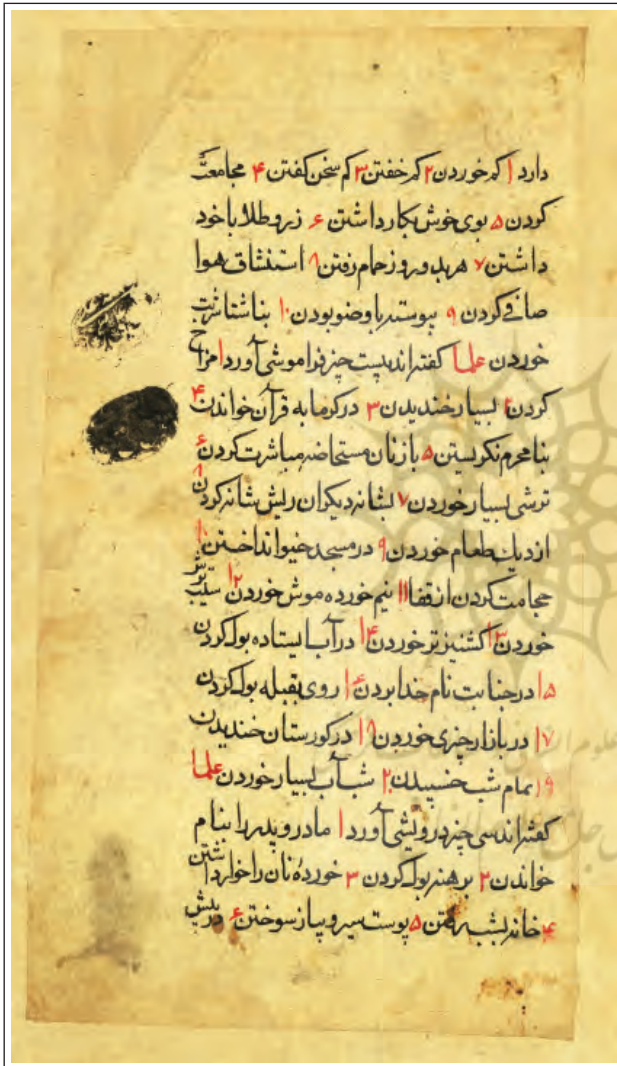 دارد ۱ کم خوردن ۲ کم خفتن ۳ کم سخن کفتن ۴ مجامعت
کردن ۵ بوی خوش بکار داشتن ۶ زر و طلا با خود
داشتن ۷ هر بدو روز حمام رفتن ۸ استنشاق هوا
صافی کردن ۹ پیوسته با وضو بودن ۱۰ بناشتا شربت
خوردن علما کفته‌اند بیست چیز فراموشی آورد ۱ مزاح
کردن ۲ بسیار خندیدن ۳ در کرمابه قرآن خواندن ۴
بنامحرم نکریستن ۵ با زنان مستحاضه مباشرت کردن ۶
ترشی بسیار خوردن ۷ بشانه دیکران ریش شانه کردن ۸
از دیك طعام خوردن ۹ در مسجد خیو انداختن ۱۰
حجامت کردن از قفا ۱۱ نیم خورده موش خوردن ۱۲ سیب ترش
خوردن ۱۳ کشنیز تر خوردن ۱۴ در آب ایستاده بول کردن
۱۵ در جنابت نام خدا بردن ۱۶ روی بقبله بول کردن
۱۷ در بازار چیزی خوردن ۱۸ در کورستان خندیدن
۱۹ تمام شب خسپیدن ۲۰ شب آب بسیار خوردن علما
کفته‌اند سی چیز درویشی آورد ۱ مادر و پدر را بنام
خواندن ۲ برهنه بول کردن ۳ خورده نان را خوار داشتن
۴ خانه بشب رفتن ۵ پوست سیر و پیاز سوختن ۶ در پیش